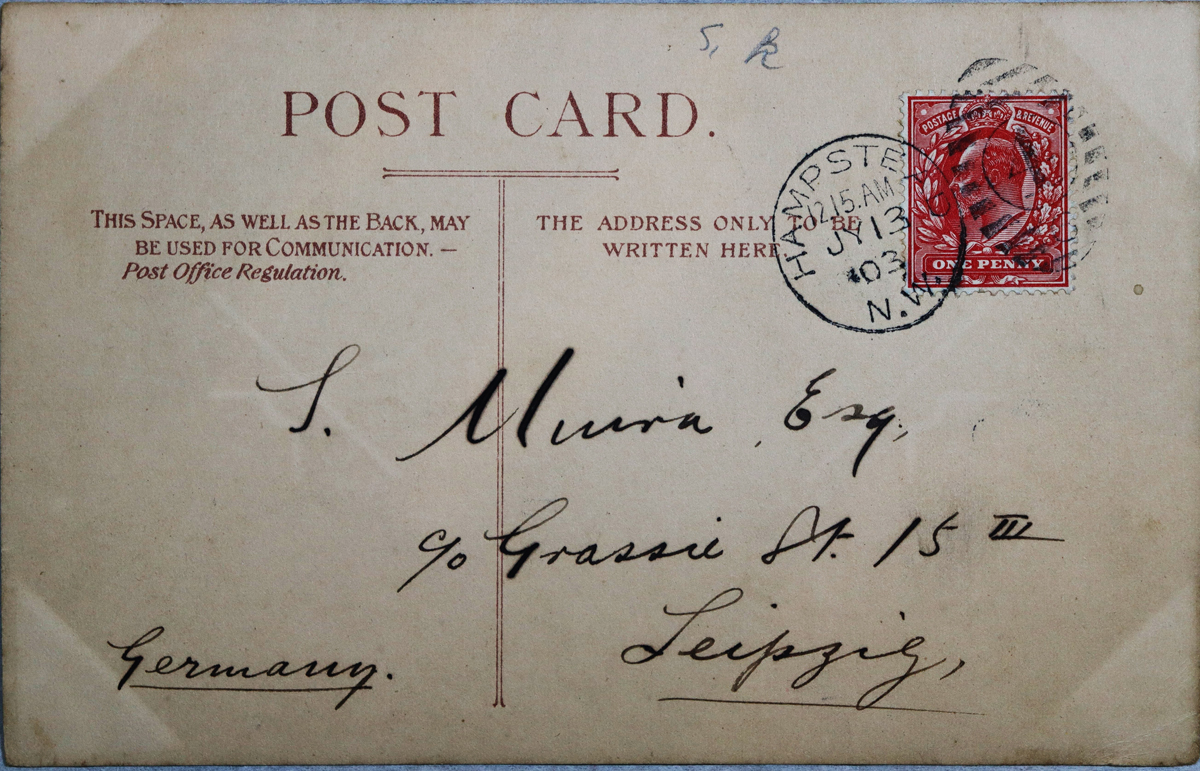 S. k
POST CARD.
THIS SPACE, AS WELL AS THE BACK, MAY
BE USED FOR COMMUNICATION. —
Post Office Regulation.
THE ADDRESS ONLY TO BE
WRITTEN HERE
POSTAGE & REVENUE
ONE PENNY
HAMPSTEA
12.15.AM
JY 13
03
N.W.
S. Miura Esq,
c/o Grassie St. 15 III
Leipzig,
Germany.